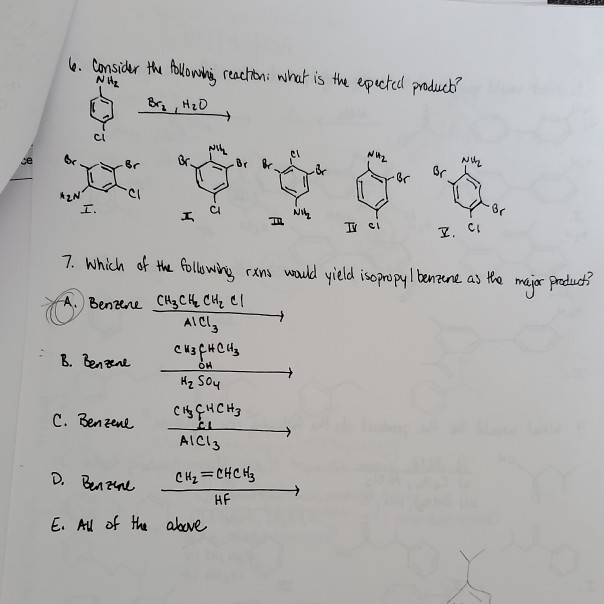 6. Consider the following reaction: what is the expected product?
NH2
Br2, H2O
Cl
Br Br H2N Cl
I.
NH2 Br Br Cl
II
Cl Br Br NH2
III
NH2 Br Cl
IV
NH2 Br Br Cl
V.
7. Which of the following rxns would yield isopropyl benzene as the major product?
A. Benzene CH3CH2CH2Cl
AlCl3
B. Benzene CH3CHCH3
OH
H2SO4
C. Benzene CH3CHCH3
Cl
AlCl3
D. Benzene CH2=CHCH3
HF
E. All of the above